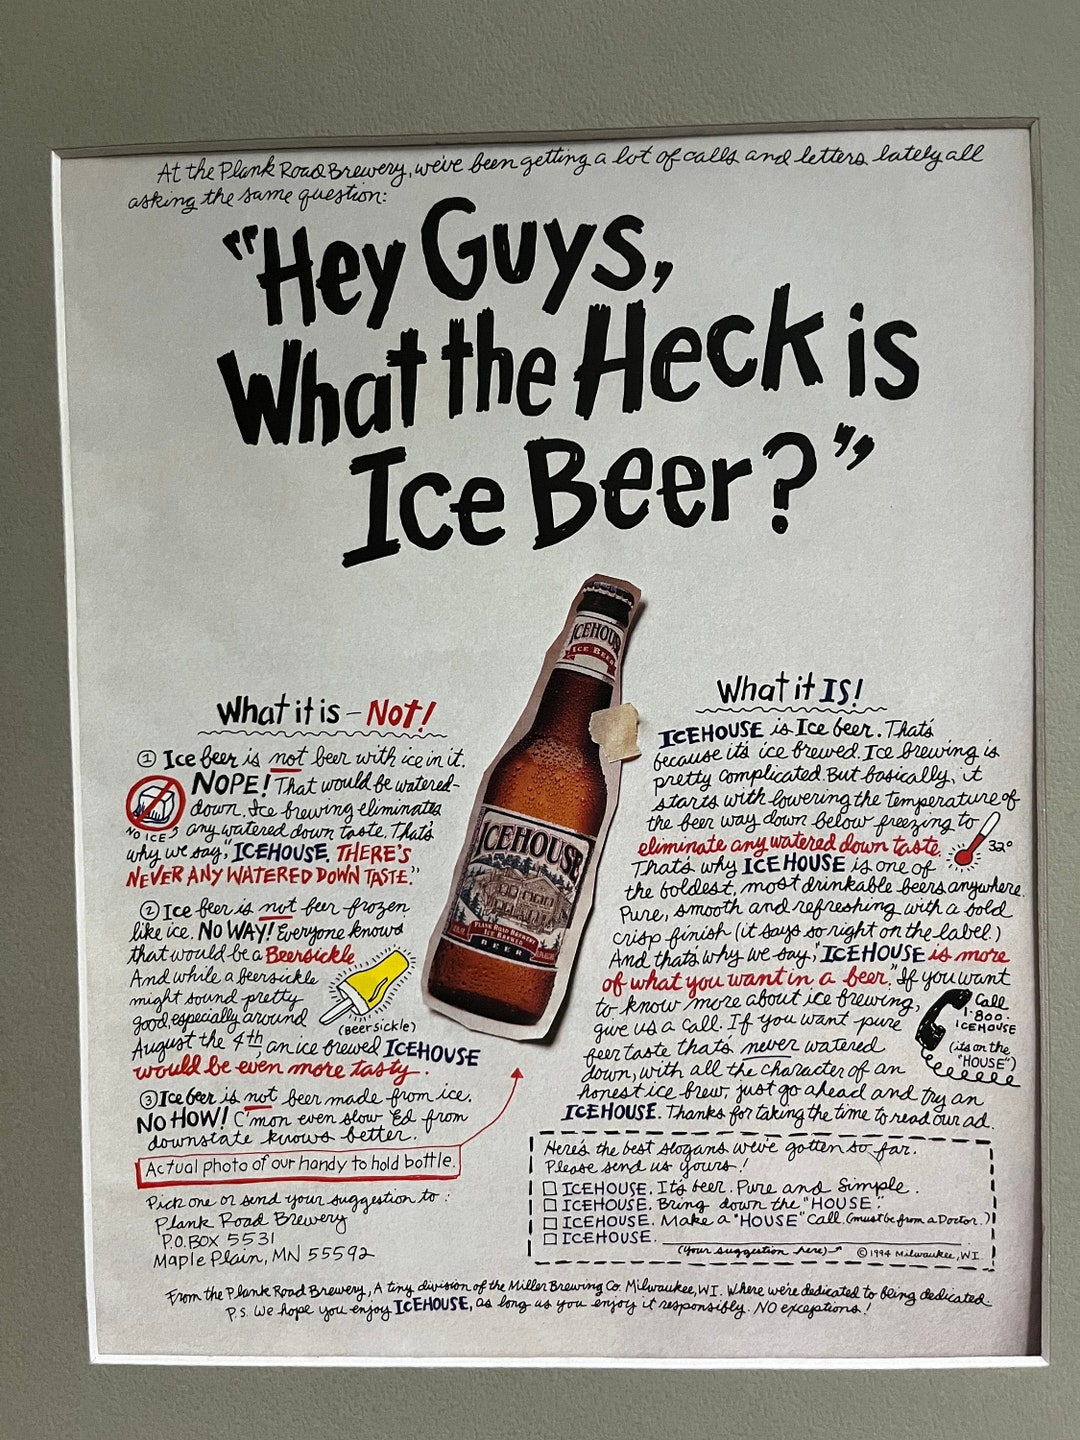 At the Plank Road Brewery, we've been getting a lot of calls and letters lately all
asking the same question:
"Hey Guys,
What the Heck is
Ice Beer?"
What it is - Not!
① Ice beer is not beer with ice in it.
NOPE! That would be watered-
down. Ice brewing eliminates
NO ICE
any watered down taste. That's
why we say, "ICEHOUSE. THERE'S
NEVER ANY WATERED DOWN TASTE."
② Ice beer is not beer frozen
like ice. NO WAY! Everyone knows
that would be a Beersickle.
And while a beersickle
might sound pretty
good, especially around
(Beersickle)
August the 4th, an ice brewed ICEHOUSE
would be even more tasty.
③ Ice beer is not beer made from ice.
NO HOW! C'mon even slow Ed from
downstate knows better.
Actual photo of our handy to hold bottle.
Pick one or send your suggestion to:
Plank Road Brewery
P.O. BOX 5531
Maple Plain, MN 55592
ICEHOUSE
ICE BEER
ICEHOUSE
PLANK ROAD BREWERY
ICE BREWED
BEER
What it IS!
ICEHOUSE is Ice beer. That's
because it's ice brewed. Ice brewing is
pretty complicated. But basically, it
starts with lowering the temperature of
the beer way down below freezing to
eliminate any watered down taste.
32°
That's why ICEHOUSE is one of
the boldest, most drinkable beers anywhere.
Pure, smooth and refreshing with a bold
crisp finish (it says so right on the label.)
And that's why we say, "ICEHOUSE is more
of what you want in a beer." If you want
to know more about ice brewing,
give us a call. If you want pure
beer taste that's never watered
down, with all the character of an
honest ice brew, just go ahead and try an
ICEHOUSE. Thanks for taking the time to read our ad.
Call
1·800·
ICEHOUSE
(it's on the
"HOUSE")
Here's the best slogans we've gotten so far.
Please send us yours!
ICEHOUSE. It's beer. Pure and Simple.
ICEHOUSE. Bring down the "HOUSE".
ICEHOUSE. Make a "HOUSE" Call (must be from a Doctor.)
ICEHOUSE.
(Your suggestion here)
© 1994 Milwaukee, WI
From the Plank Road Brewery, A tiny division of the Miller Brewing Co. Milwaukee, WI. Where we're dedicated to being dedicated.
P.S. We hope you enjoy ICEHOUSE, as long as you enjoy it responsibly. NO exceptions!